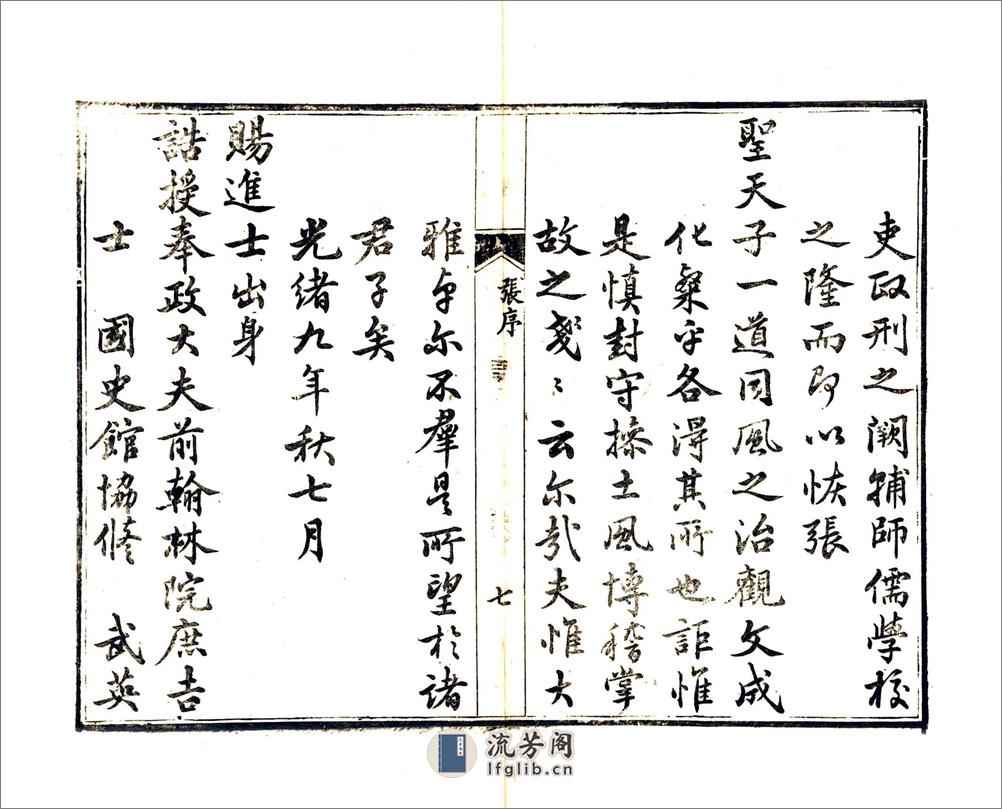 吏政刑之闕輔師儒學校
之隆而即以恢張
聖天子一道同風之治觀文成
化粲乎各得其所也詎惟
是慎封守操土風博稽掌
故之戔〻云尔哉夫惟大
張序
七
雅卓尔不羣是所望於諸
君子矣
光緒九年秋七月
賜進士出身
誥授奉政大夫前翰林院庶吉
士 國史館協修 武英
流芳阁
lfglib.cn